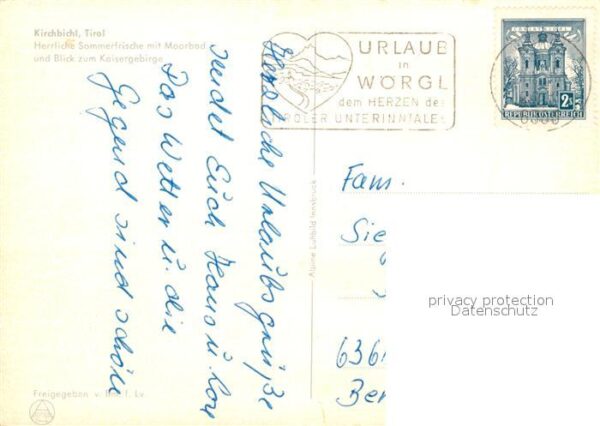 Kirchbichl, Tirol
Herrliche Sommerfrische mit Moorbad
und Blick zum Kaisergebirge
Herzliche Urlaubsgrüße
sendet Euch Hans u. Lore
Das Wetter u. die
Gegend sind schön
URLAUB
in
WÖRGL
dem HERZEN des
TIROLER UNTERINNTALES
CHRISTKINDL
2S
REPUBLIK ÖSTERREICH
Alpine Luftbild Innsbruck
Fam.
Sie
636
Ber
privacy protection
Datenschutz
Freigegeben v. BM. f. Lv.